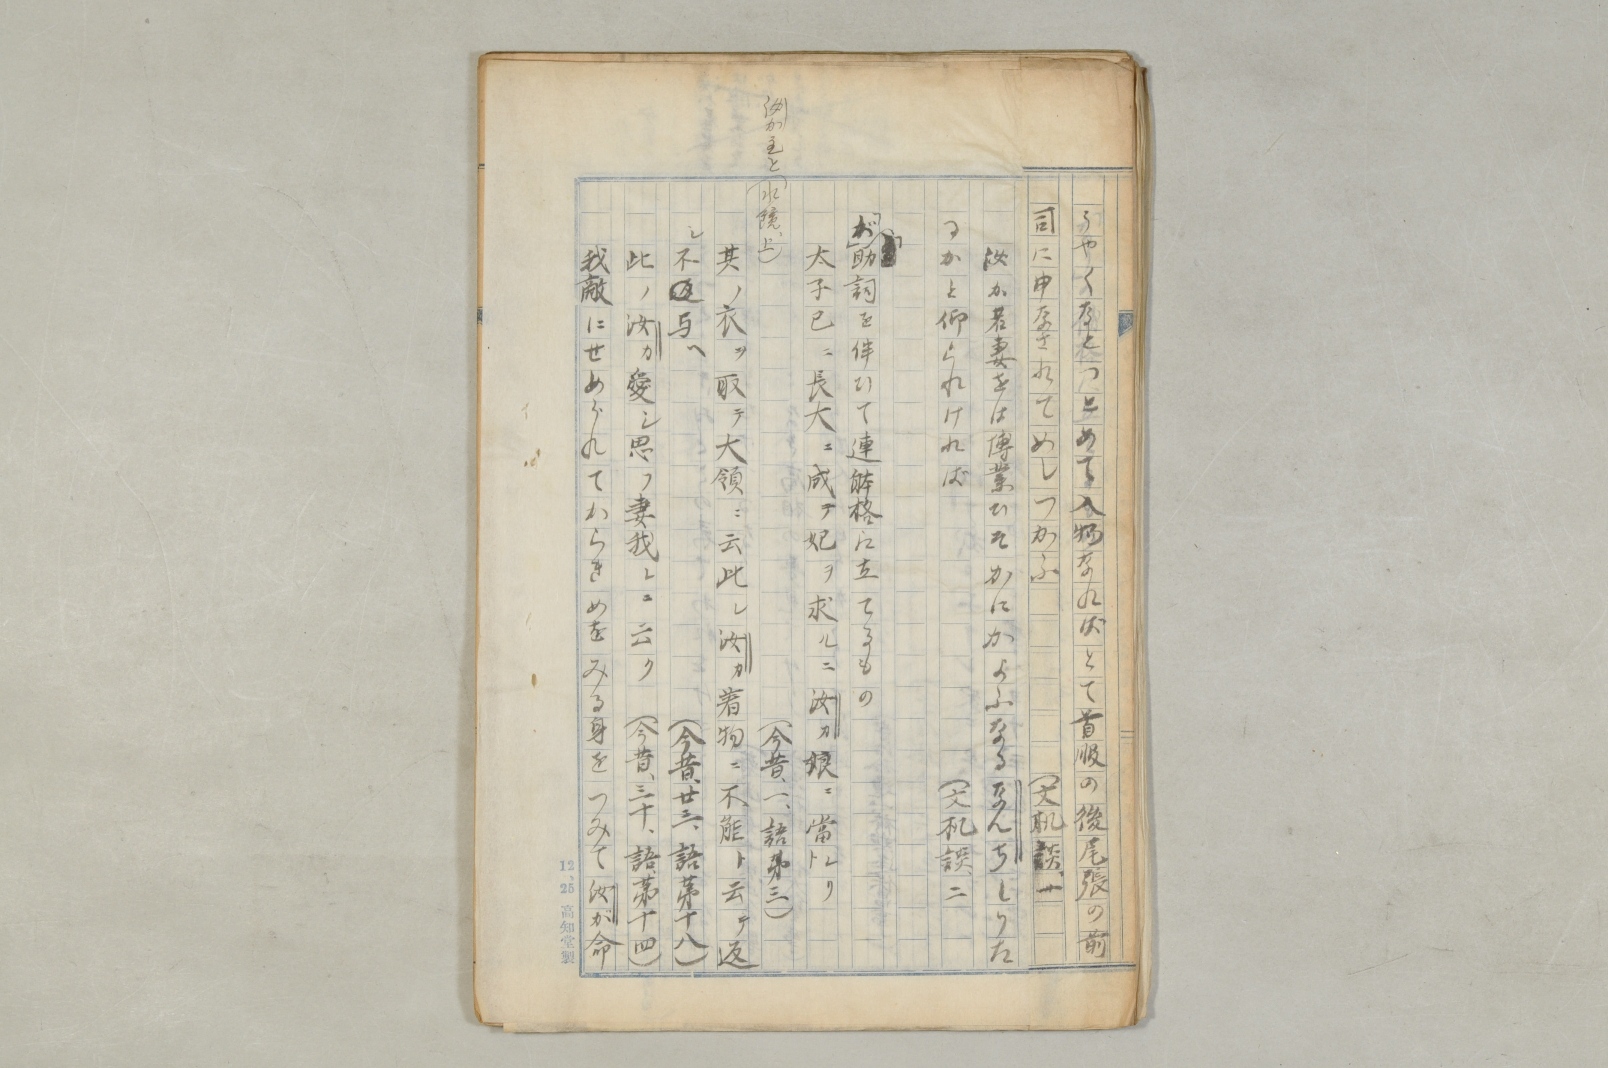 うやくなとつとめて入物なればとて首服の後尾張の前
司に申なされてめしつかふ
汝か若妻をは傅業ひそかにかよふなるなんちしりた
るかと仰られければ
(文机談、二
が助詞を伴ひて連躰格に立てるもの
太子已ニ長大ニ成テ妃ヲ求ルニ汝カ娘ニ當レリ
(今昔、一、語第三)
汝か主と(水鏡、上)
其ノ衣ヲ取テ大領ニ云此レ汝カ着物ニ不能ト云テ返
シ不与ヘ
(今昔、廿三、語第十八)
此ノ汝カ愛シ思フ妻我レニ云ク
(今昔、三十、語第十四)
我敵にせめられてからきめをみる身をつみて汝が命
12、25 高知堂製